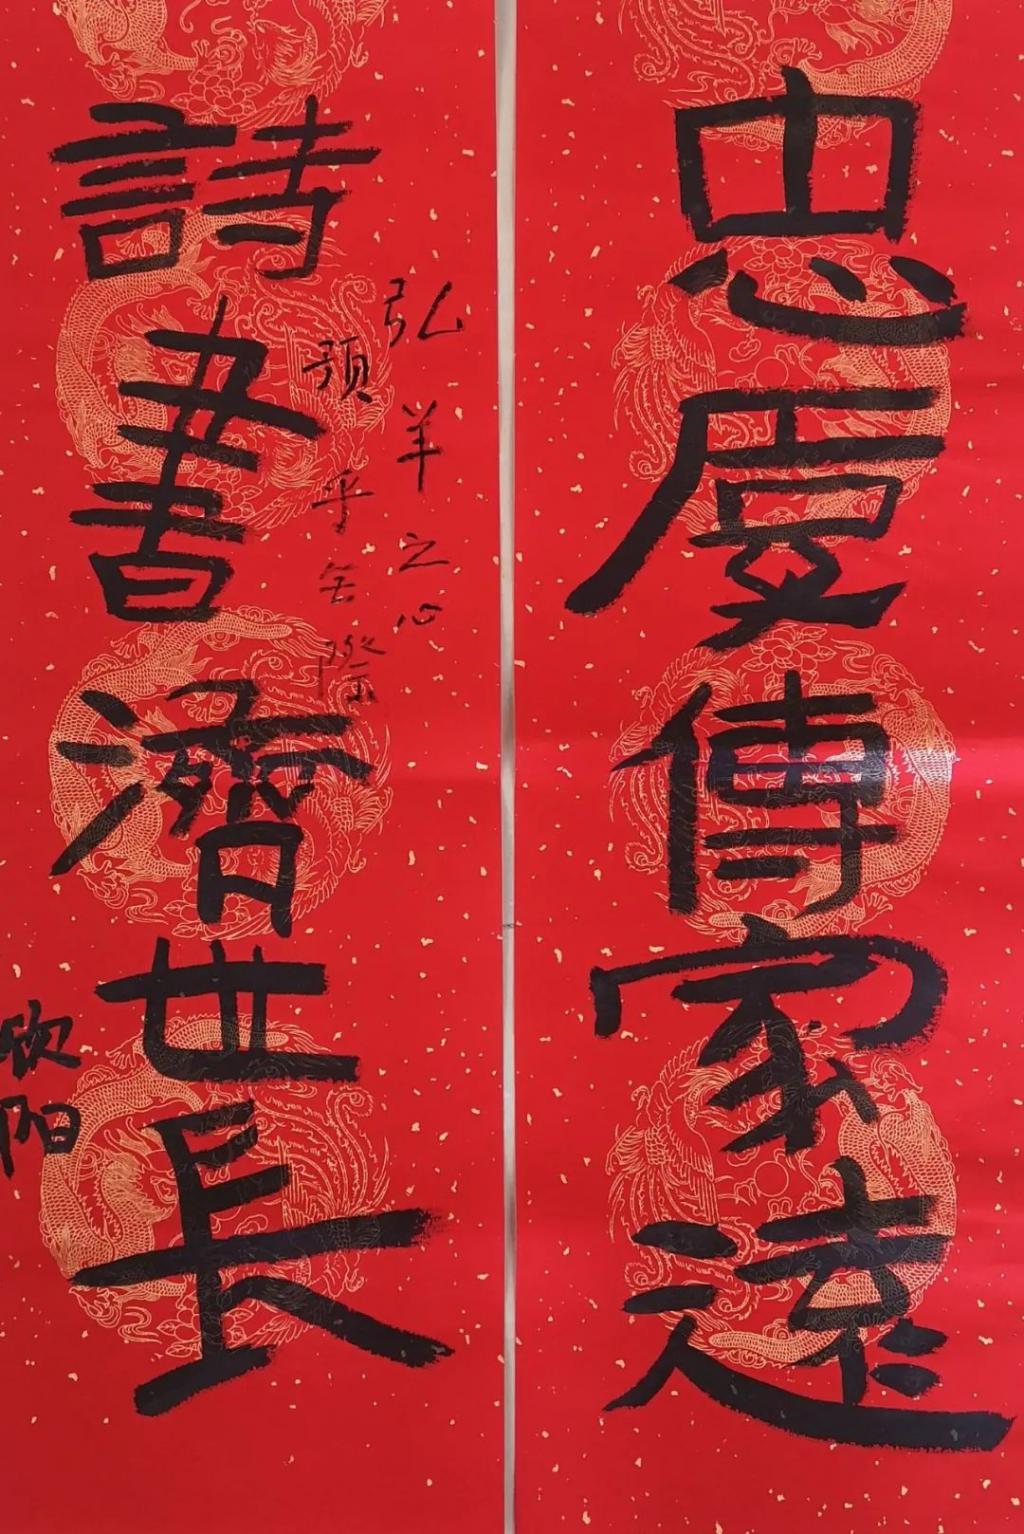 忠厚傳家遠
詩書濟世長
弘羊之心
預乎際
欣阳